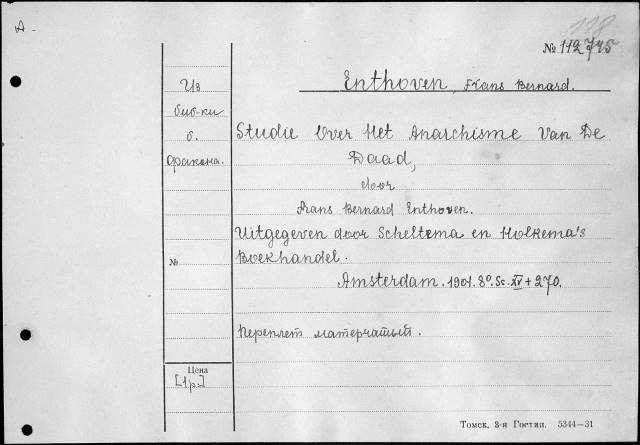 А-
118
№ 112745
Enthoven, Frans Bernard.
Из
биб-ки
б.
Фракена.
Studie Over Het Anarchisme Van De
Daad,
door
Frans Bernard Enthoven.
Uitgegeven door Scheltema en Holkema's
Boekhandel.
№
Amsterdam. 1901. 8º. Sc. XV + 270.
Переплет матерчатый.
Цена
[1р.]
Томск, 3-я Гостип. 5344—31